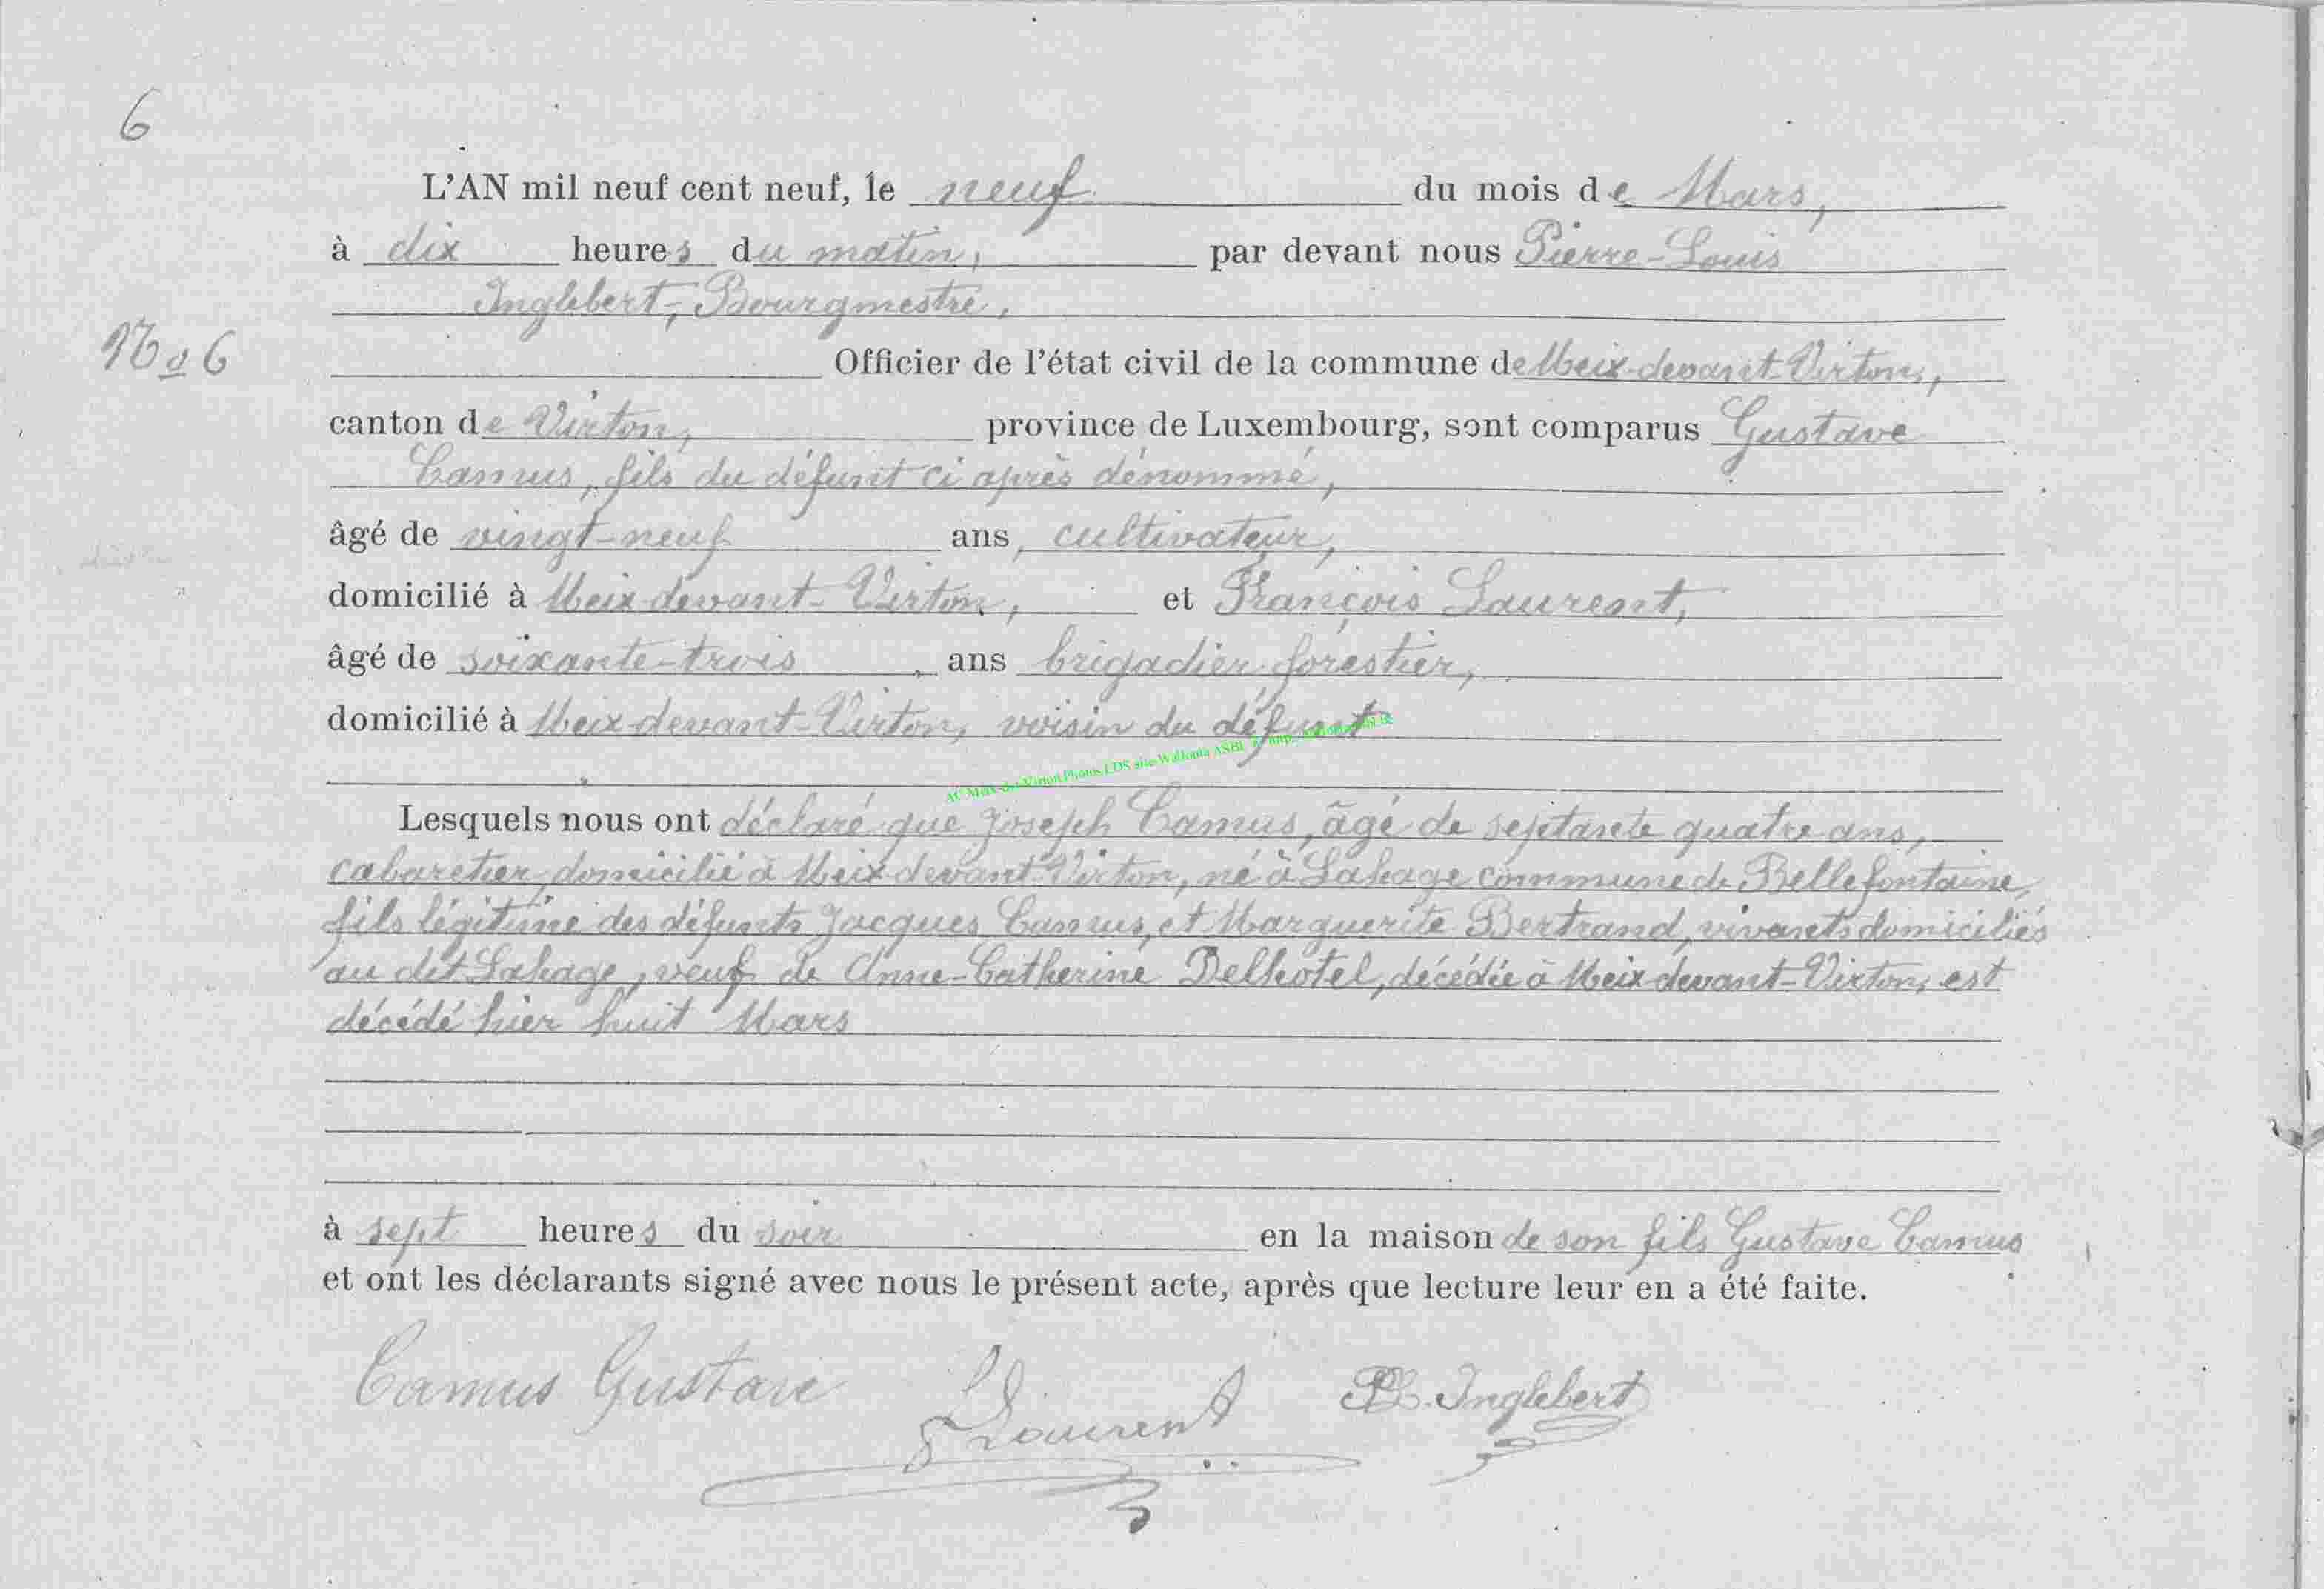 6
L'AN mil neuf cent neuf, le neuf du mois de Mars,
à dix heures du matin, par devant nous Pierre-Louis
Inglebert, Bourgmestre,
No 6
Officier de l'état civil de la commune de Meix-devant-Virton,
canton de Virton, province de Luxembourg, sont comparus Gustave
Camus, fils du défunt ci après dénommé,
âgé de vingt-neuf ans, cultivateur,
domicilié à Meix-devant-Virton, et François Laurent,
âgé de soixante-trois ans brigadier forestier,
domicilié à Meix-devant-Virton, voisin du défunt
AC Meix-dvt-Virton Photos LDS site Wallonia ASBL
Lesquels nous ont déclaré que Joseph Camus, âgé de septante quatre ans,
cabaretier, domicilié à Meix-devant-Virton, né à Lahage commune de Bellefontaine,
fils légitime des défunts Jacques Camus, et Marguerite Bertrand, vivants domiciliés
au dit Lahage, veuf de Anne-Catherine Delhotel, décédée à Meix-devant-Virton, est
décédé hier huit Mars
à sept heures du soir en la maison de son fils Gustave Camus
et ont les déclarants signé avec nous le présent acte, après que lecture leur en a été faite.
Camus Gustave Laurent PL. Inglebert